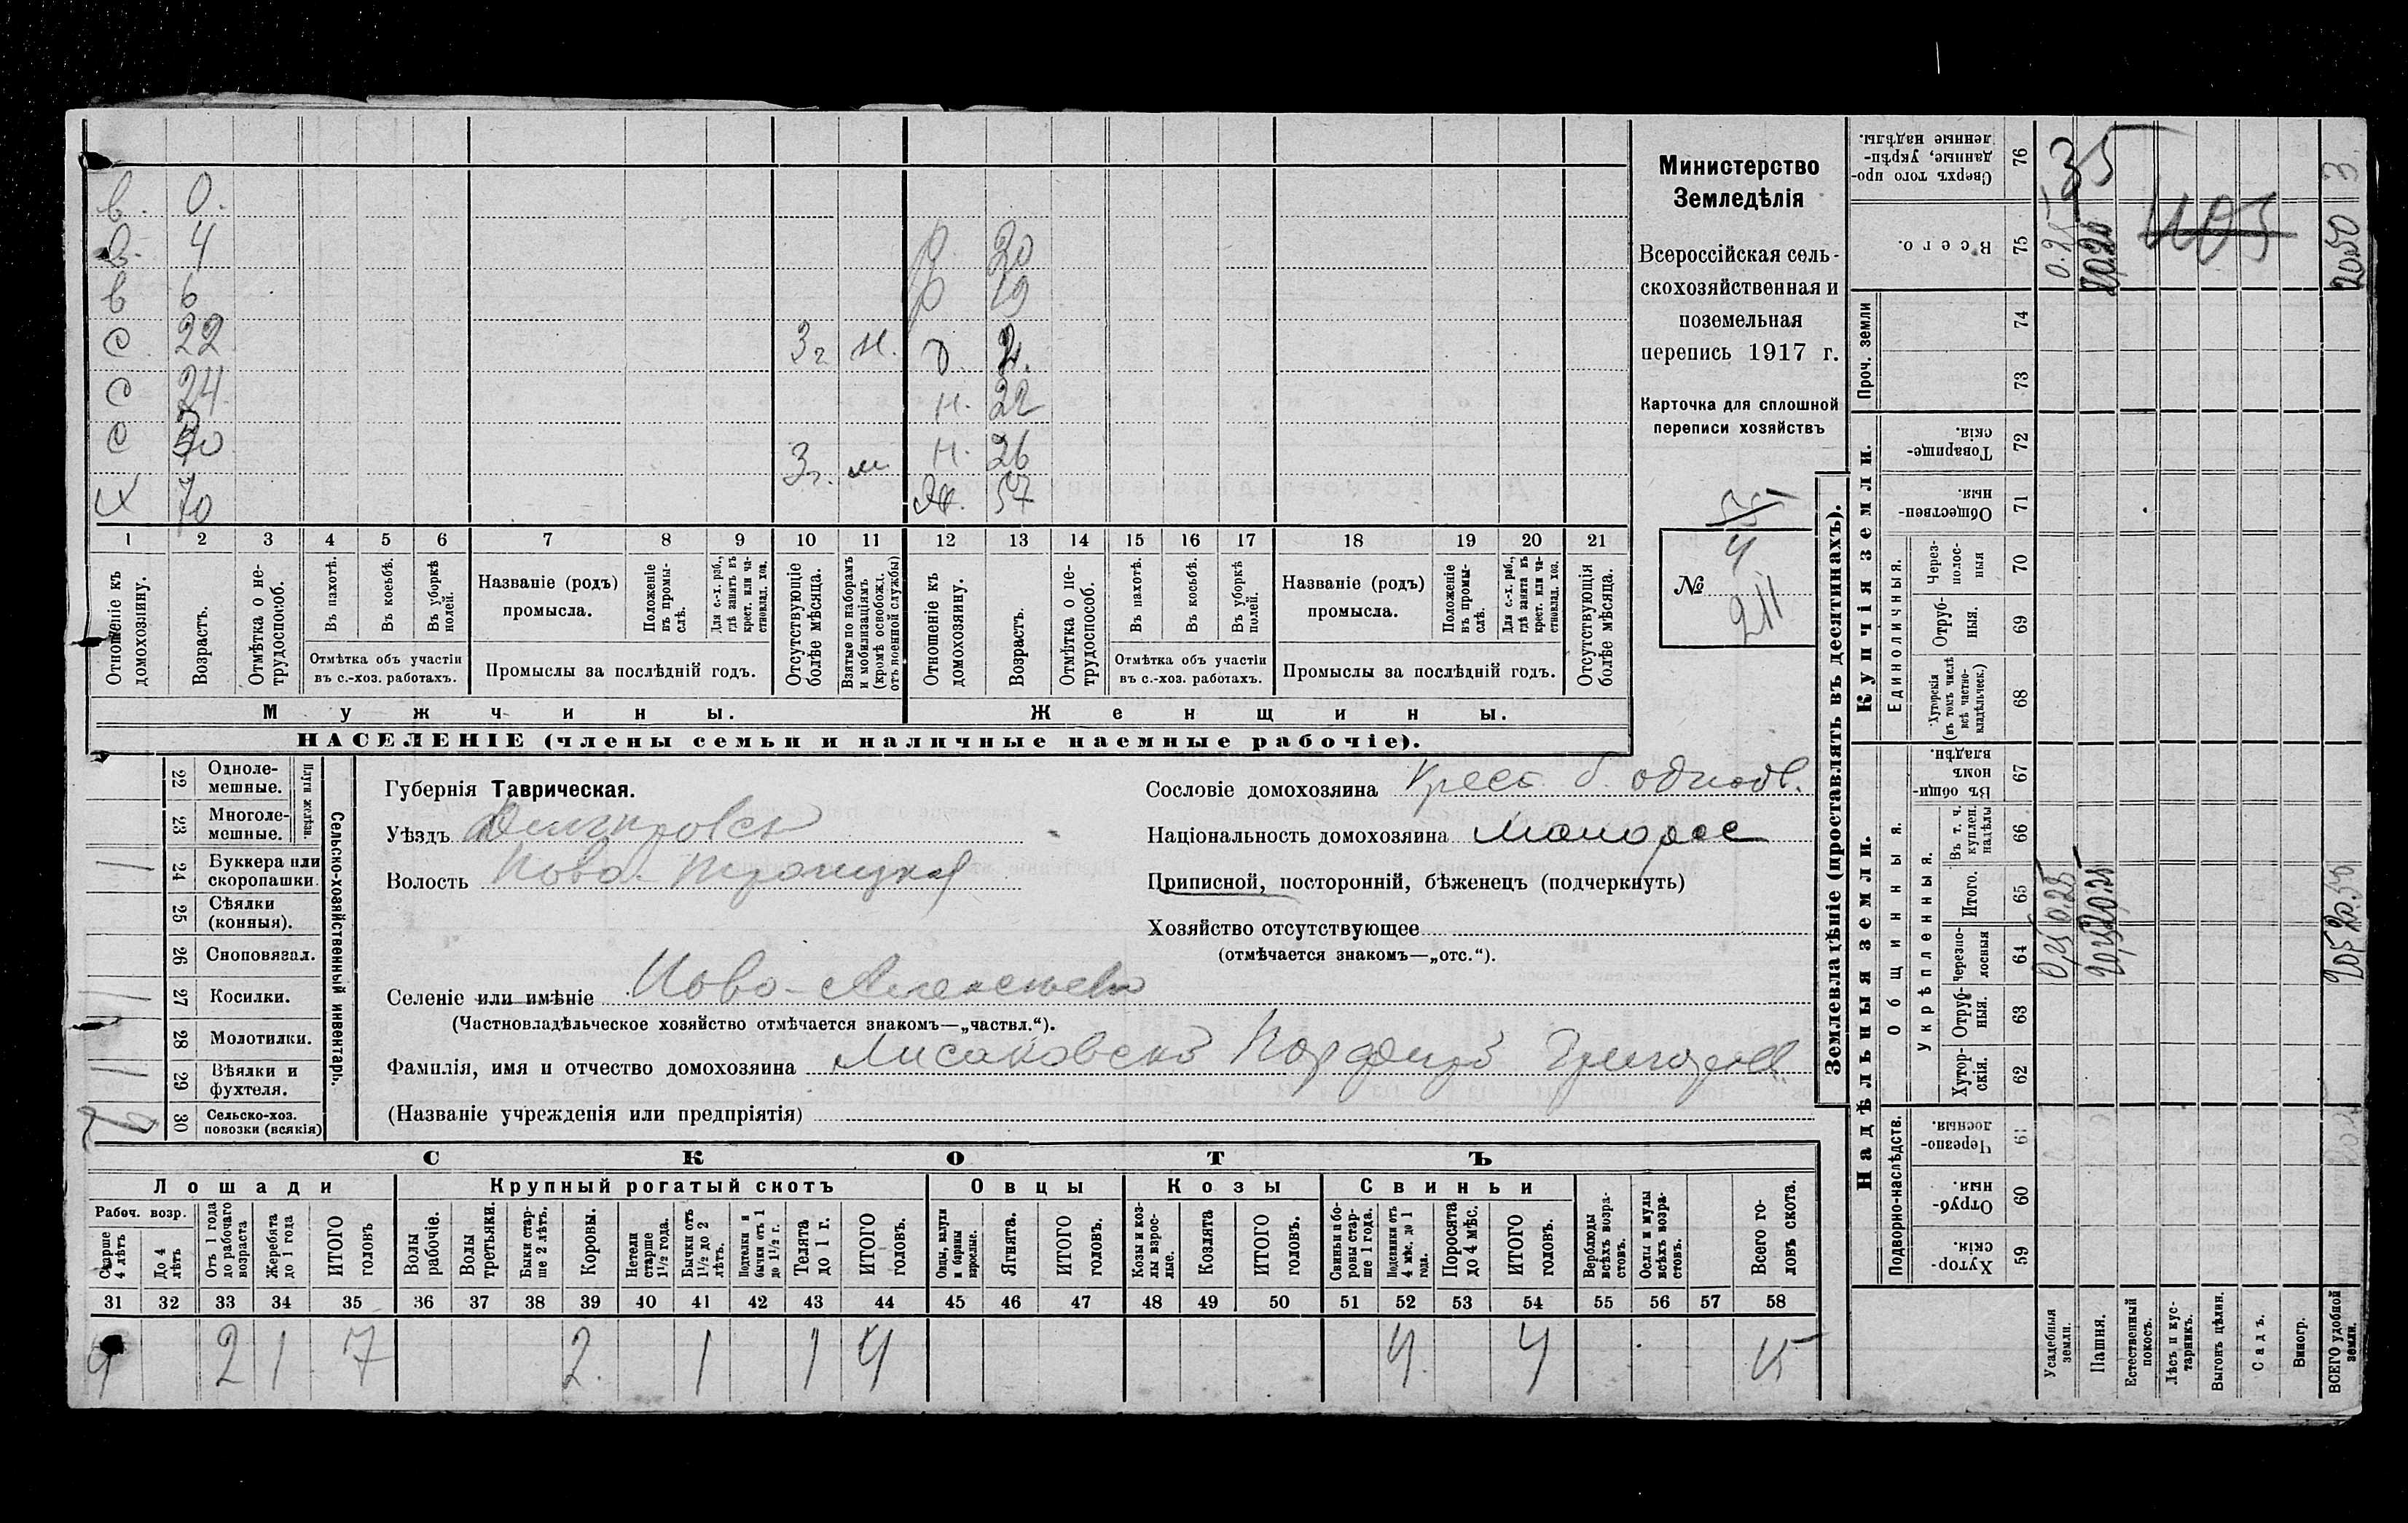 в. 0.
в. 4 р. 20
в 6 р 19
с 22 3 г н. д 2.
с 24 н. 22
с 30 3 г. м н. 26
х 70 ж. 57
1 2 3 4 5 6 7 8 9 10 11 12 13 14 15 16 17 18 19 20 21
Отношеніе къ домохозяину.
Возрастъ.
Отмѣтка о не-трудоспособ.
Въ пахотѣ.
Въ косьбѣ.
Въ уборкѣ полей.
Отмѣтка объ участіи
въ с.-хоз. работахъ.
Названіе (родъ)
промысла.
Положеніе въ промы-слѣ.
Для с.-х. раб., гдѣ занятъ въ крест. или ча-стновлад. хоз.
Промыслы за послѣдній годъ.
Отсутствующіе болѣе мѣсяца.
Взятые по наборамъ и мобилизаціямъ (кромѣ освобожд. отъ военной службы)
Отношеніе къ домохозяину.
Возрастъ.
Отмѣтка о не-трудоспособ.
Въ пахотѣ.
Въ косьбѣ.
Въ уборкѣ полей.
Отмѣтка объ участіи
въ с.-хоз. работахъ.
Названіе (родъ)
промысла.
Положеніе въ промы-слѣ.
Для с.-х. раб., гдѣ занята въ крест. или ча-стновлад. хоз.
Промыслы за послѣдній годъ.
Отсутствующія болѣе мѣсяца.
Мужчины. Женщины.
НАСЕЛЕНІЕ (члены семьи и наличные наемные рабочіе).
Министерство
Земледѣлія
Всероссійская сель-
скохозяйственная и
поземельная
перепись 1917 г.
Карточка для сплошной
переписи хозяйствъ
4
№ 211
Сельско-хозяйственный инвентарь.
Плуги желѣз.
22 Одноле-мешные.
23 Многоле-мешные.
24 Буккера или скоропашки
25 Сѣялки (конныя).
26 Сноповязал.
27 Косилки.
28 Молотилки.
29 Вѣялки и фухтеля.
30 Сельско-хоз. повозки (всякія)
Губернія Таврическая.
Уѣздъ Днепровск
Волость Ново-Троицкая
Селеніе или имѣніе Ново-Алексеевка
(Частновладѣльческое хозяйство отмѣчается знакомъ—„частвл.“).
Фамилія, имя и отчество домохозяина Лисаковскій Порфирій Григорьев.
(Названіе учрежденія или предпріятія)
Сословіе домохозяина крест. б.
Національность домохозяина малоросс
Приписной, посторонній, бѣженецъ (подчеркнуть)
Хозяйство отсутствующее
(отмѣчается знакомъ—„отс.“).
СКОТЪ
Лошади Крупный рогатый скотъ Овцы Козы Свиньи
Рабоч. возр.
Старше 4 лѣтъ
До 4 лѣтъ
Отъ 1 года до рабочаго возраста
Жеребята до 1 года
ИТОГО головъ
Волы рабочіе.
Волы третьяки.
Быки стар-ше 2 лѣтъ.
Коровы.
Нетели старше 1½ года.
Бычки отъ 1½ до 2 лѣтъ.
Подтелки и бычки отъ 1 до 1½ г.
Телята до 1 г.
ИТОГО головъ.
Овцы, валухи и бараны взрослые.
Ягнята.
ИТОГО головъ.
Козы и коз-лы взрос-лые.
Козлята
ИТОГО головъ.
Свиньи и бо-ровы стар-ше 1 года.
Подсвинки отъ 4 мѣс. до 1 года.
Поросята до 4 мѣс.
ИТОГО головъ.
Верблюды всѣхъ возра-стовъ.
Ослы и мулы всѣхъ возра-стовъ.
Всего го-ловъ скота.
31 32 33 34 35 36 37 38 39 40 41 42 43 44 45 46 47 48 49 50 51 52 53 54 55 56 57 58
4 2 1 7 2. 1 1 4 4. 4 15
Землевладѣніе (проставлять въ десятинахъ).
Надѣльныя земли. Купчія земли. Проч. земли
Подворно-наслѣдств. Общинныя. Укрѣпленныя. Единоличныя.
59 Хутор-скія.
60 Отруб-ныя.
61 Черезпо-лосныя.
62 Хутор-скія.
63 Отруб-ныя.
64 Черезпо-лосныя
65 Итого.
66 Въ т. ч. куплен. надѣлы
67 Въ общин-номъ владѣн.
68 Хуторскія (въ томъ числѣ всѣ частно-владѣльческ.)
69 Отруб-ныя.
70 Через-полос-ныя
71 Обществен-ныя.
72 Товарище-скія.
73
74
75 Всего.
76 Сверхъ того про-данные, укрѣп-ленные надѣлы.
Усадебныя земли. 0,25 0.25 0.25
Пашня. 20,25 20.25
35
Естественный покосъ.
Лѣсъ и кус-тарникъ.
Выгонъ цѣлин.
Садъ.
Виногр.
ВСЕГО удобной земли. 20.50 20.50 3